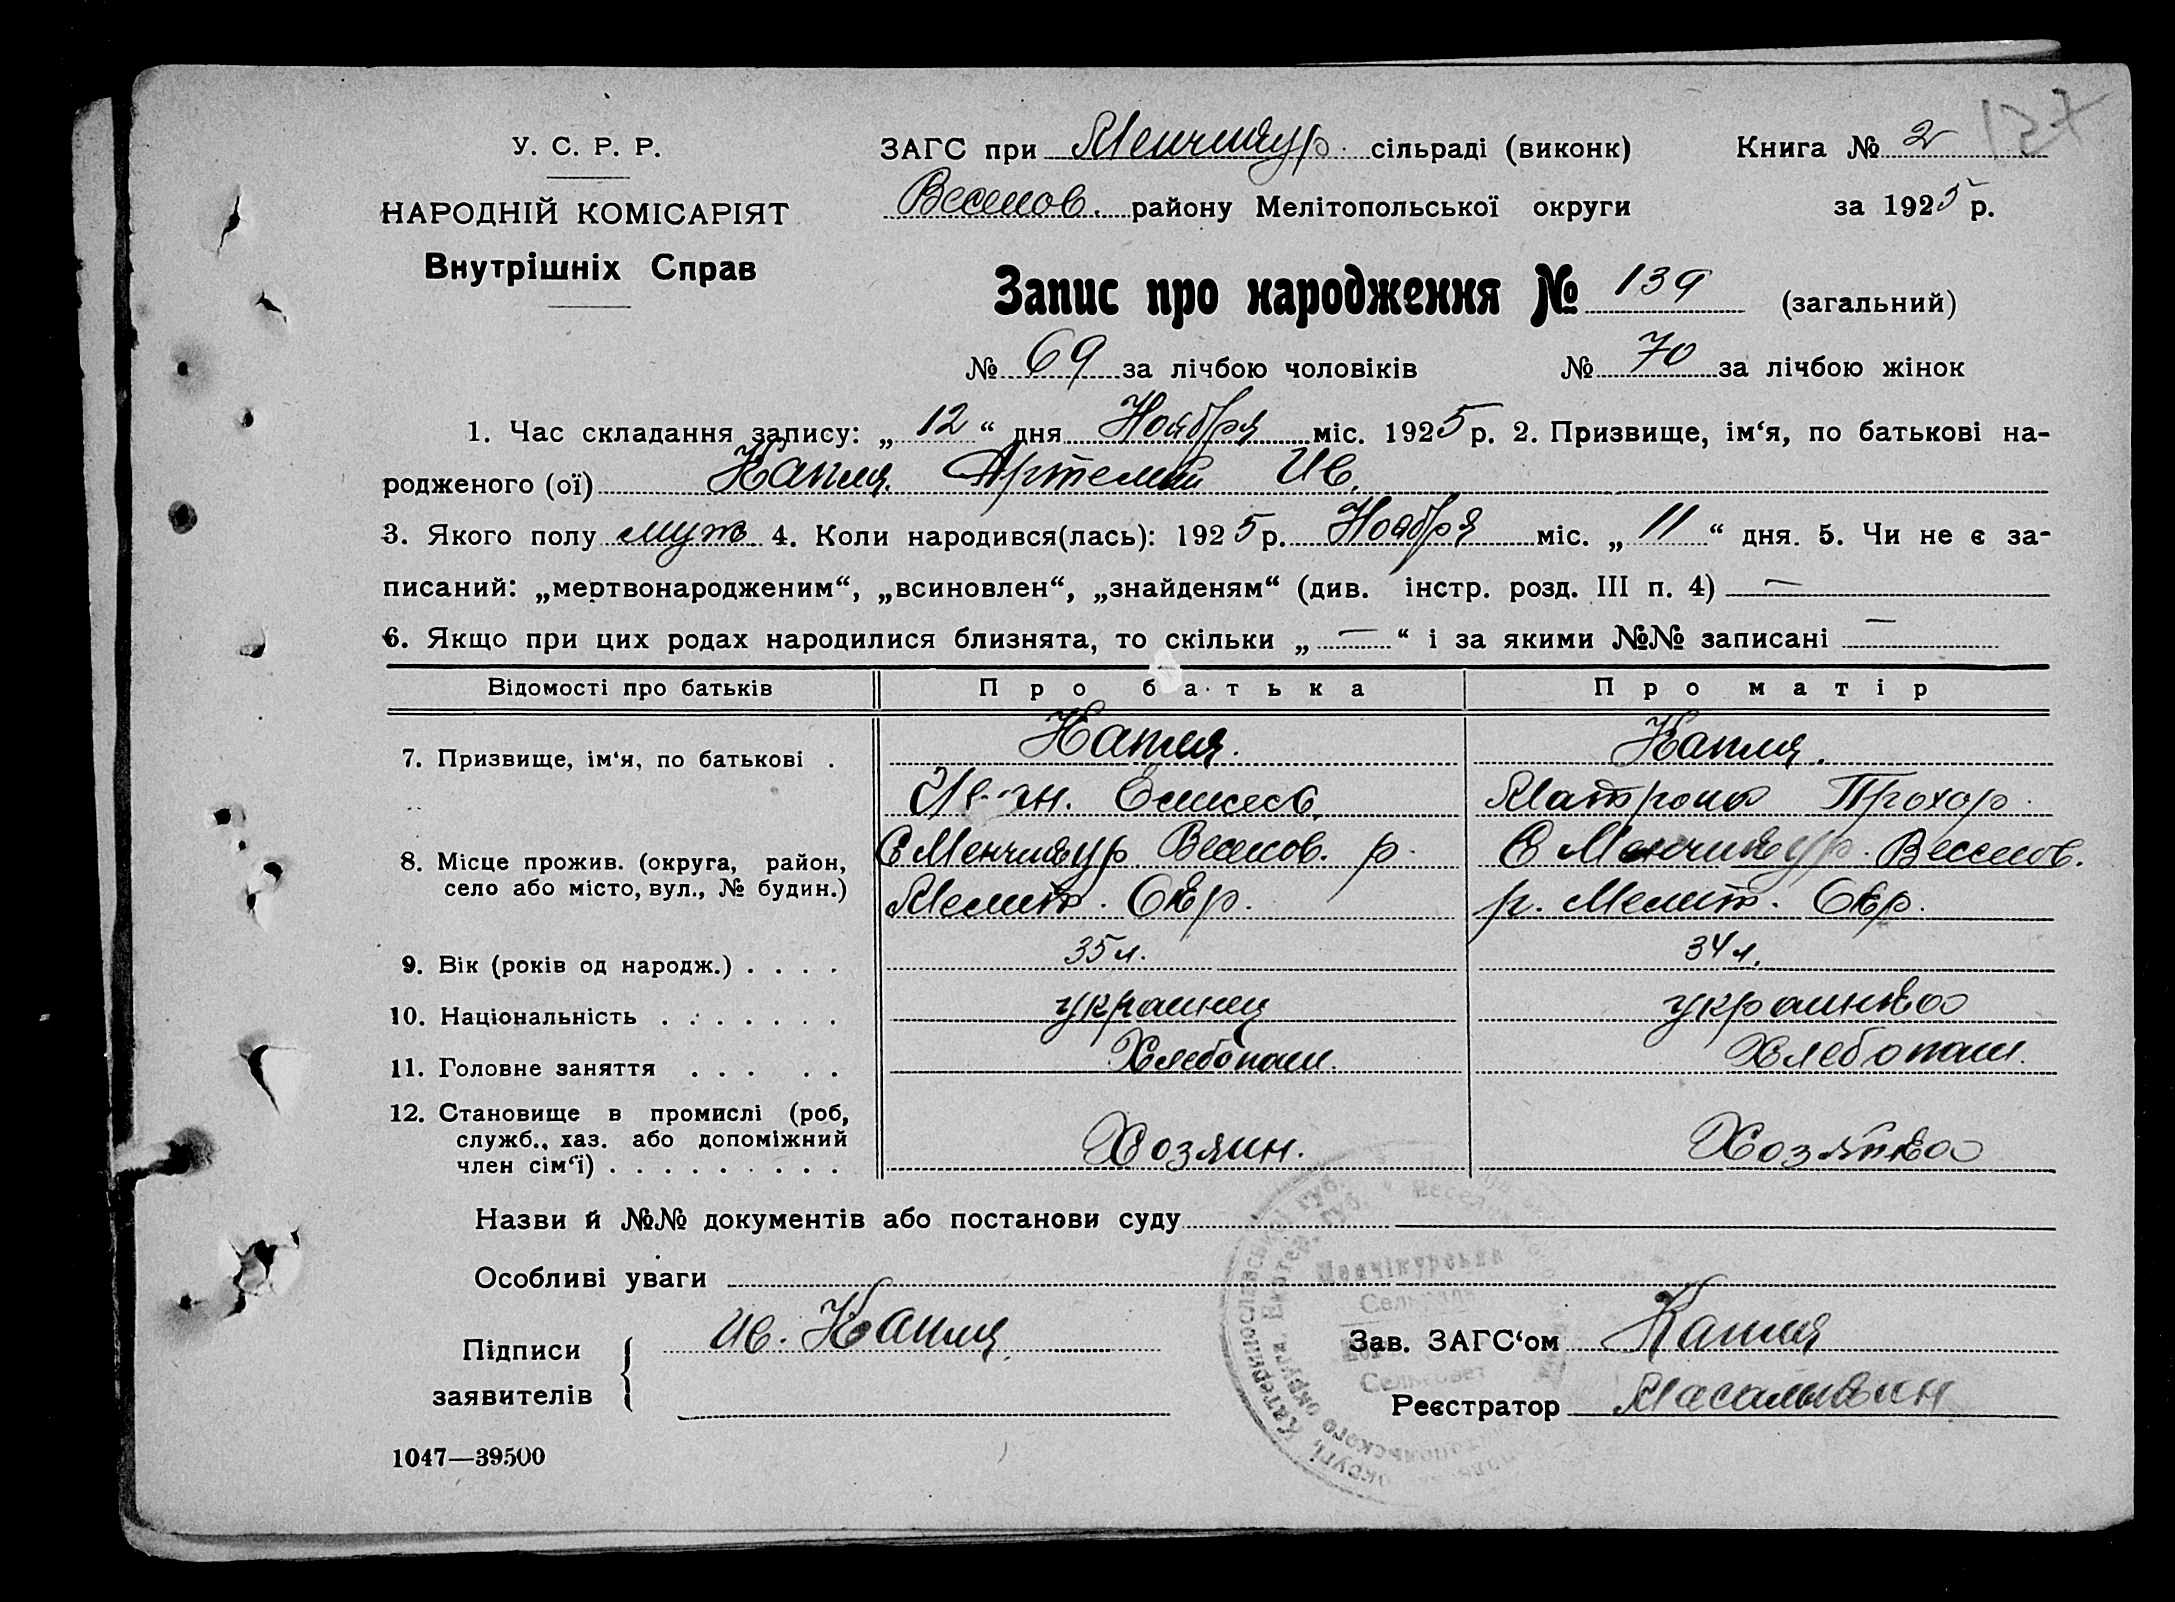 137
У. С. Р. Р.
НАРОДНІЙ КОМІСАРІЯТ
Внутрішніх Справ
ЗАГС при Менчикур. сільраді (виконк) Книга № 2
Веселов. району Мелітопольської округи за 1925 р.
Запис про народження № 139 (загальний)
№ 69 за лічбою чоловіків № 70 за лічбою жінок
1. Час складання запису: „ 12 “ дня Ноября міс. 1925 р. 2. Призвище, ім‘я, по батькові на-
родженого (ої) Капля. Артемий Ив.
3. Якого полу муж. 4. Коли народився(лась): 1925 р. Ноября міс. „ 11 “ дня. 5. Чи не є за-
писаний: „мертвонародженим“, „всиновлен“, „знайденям“ (див. інстр. розд. III п. 4) —
6. Якщо при цих родах народилися близнята, то скільки „ — “ і за якими №№ записані —
Відомості про батьків Про батька Про матір
7. Призвище, ім‘я, по батькові . Капля. Капля.
Матрона Прохор.
8. Місце прожив. (округа, район, С Менчикур Веселов. р. С Менчикур. Веселов.
село або місто, вул., № будин.) Мелит. Окр. р. Мелит. Окр.
9. Вік (років од народж.) . . . . 35 л. 34 л.
10. Національність . . . . . . . украинец украинка
11. Головне заняття . . . . . Хлебопаш. Хлебопаш.
12. Становище в промислі (роб,
служб., хаз. або допоміжний Хозяин. Хозяйка
член сім‘ї) . . . . . . . . .
Назви й №№ документів або постанови суду
Особливі уваги
Менчікурська
Сельрада
Сельсовет
Підписи заявителів Ив. Капля.
Зав. ЗАГС‘ом Капля
Реєстратор Масалыкин
1047—39500